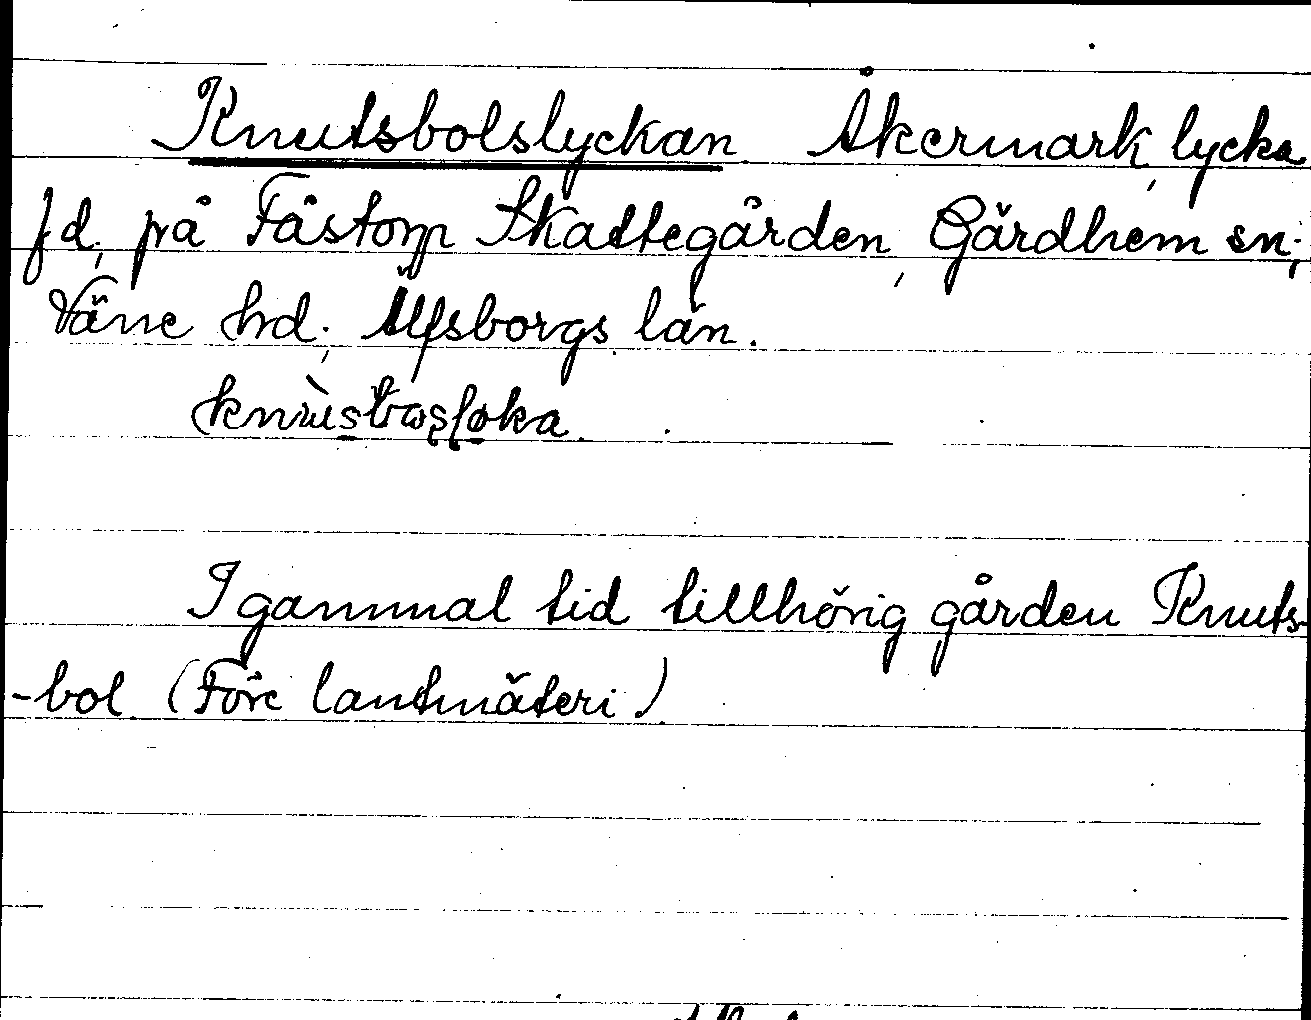 Knutsbolslyckan Åkermark, lycka
fd, på Fåstorp Skattegården, Gärdhem sn;
Väne hd; Älfsborgs län.
I gammal tid tillhörig gården Knuts-
-bol (Före lantmäteri)